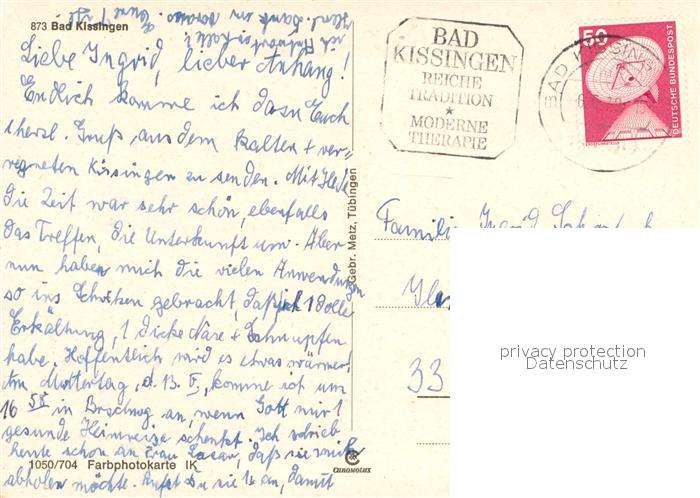 873 Bad Kissingen
Liebe Ingrid, lieber Anhang!
Endlich komme ich dazu Euch
herzl. Gruß aus dem kalten + ver=
regneten Kissingen zu senden. Mit Hede
die Zeit war sehr schön, ebenfalls
das Treffen, die Unterkunft usw. Aber
nun haben mich die vielen Anwendungen
so ins Schwitzen gebracht, daß ich 1 dolle
Erkältung, 1 dicke Nase + Schnupfen
habe. Hoffentlich wird es etwas wärmer!
Am Muttertag, d. 13. 5., komme ich um
16 58 in Brschwg an, wenn Gott mir 1
gesunde Heimreise schenkt. Ich schrieb
heute schon an Frau, daß sie mich
abholen möchte. Rufst Du sie 1x an, damit
herzl. Dank im voraus. Eure
1050/704 Farbphotokarte IK
CHROMOLUX
Gebr. Metz, Tübingen
BAD
KISSINGEN
REICHE
TRADITION
★
MODERNE
THERAPIE
BAD KISSINGEN
50
DEUTSCHE BUNDESPOST
Familie Ingrid
33
privacy protection
Datenschutz